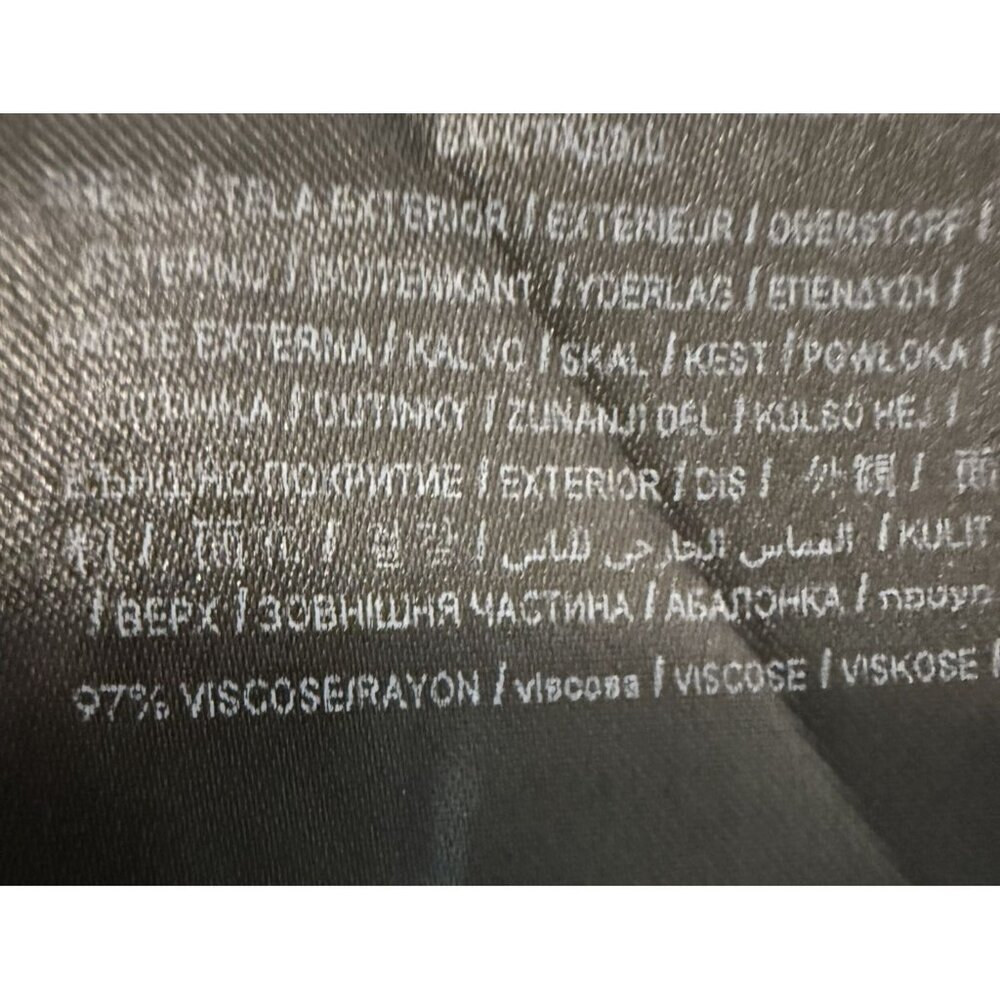 / TELA EXTERIOR / EXTERIEUR / OBERSTOFF /
ESTERNO / BUITENKANT / YDERLAG / ΕΠΕΝΔΥΣΗ /
PARTE EXTERNA / KALVO / SKAL / KEST / POWŁOKA /
/ DUTINKY / ZUNANJI DEL / KÜLSŐ HÉJ /
ВЪНШНО ПОКРИТИЕ / EXTERIOR / DIŞ / 外観 / 面
料 / 面料 / 겉감 / القماس الخارجي للباس / KULIT
/ ВЕРХ / ЗОВНІШНЯ ЧАСТИНА / АБАЛОНКА /
97% VISCOSE/RAYON / viscosa / VISCOSE / VISKOSE